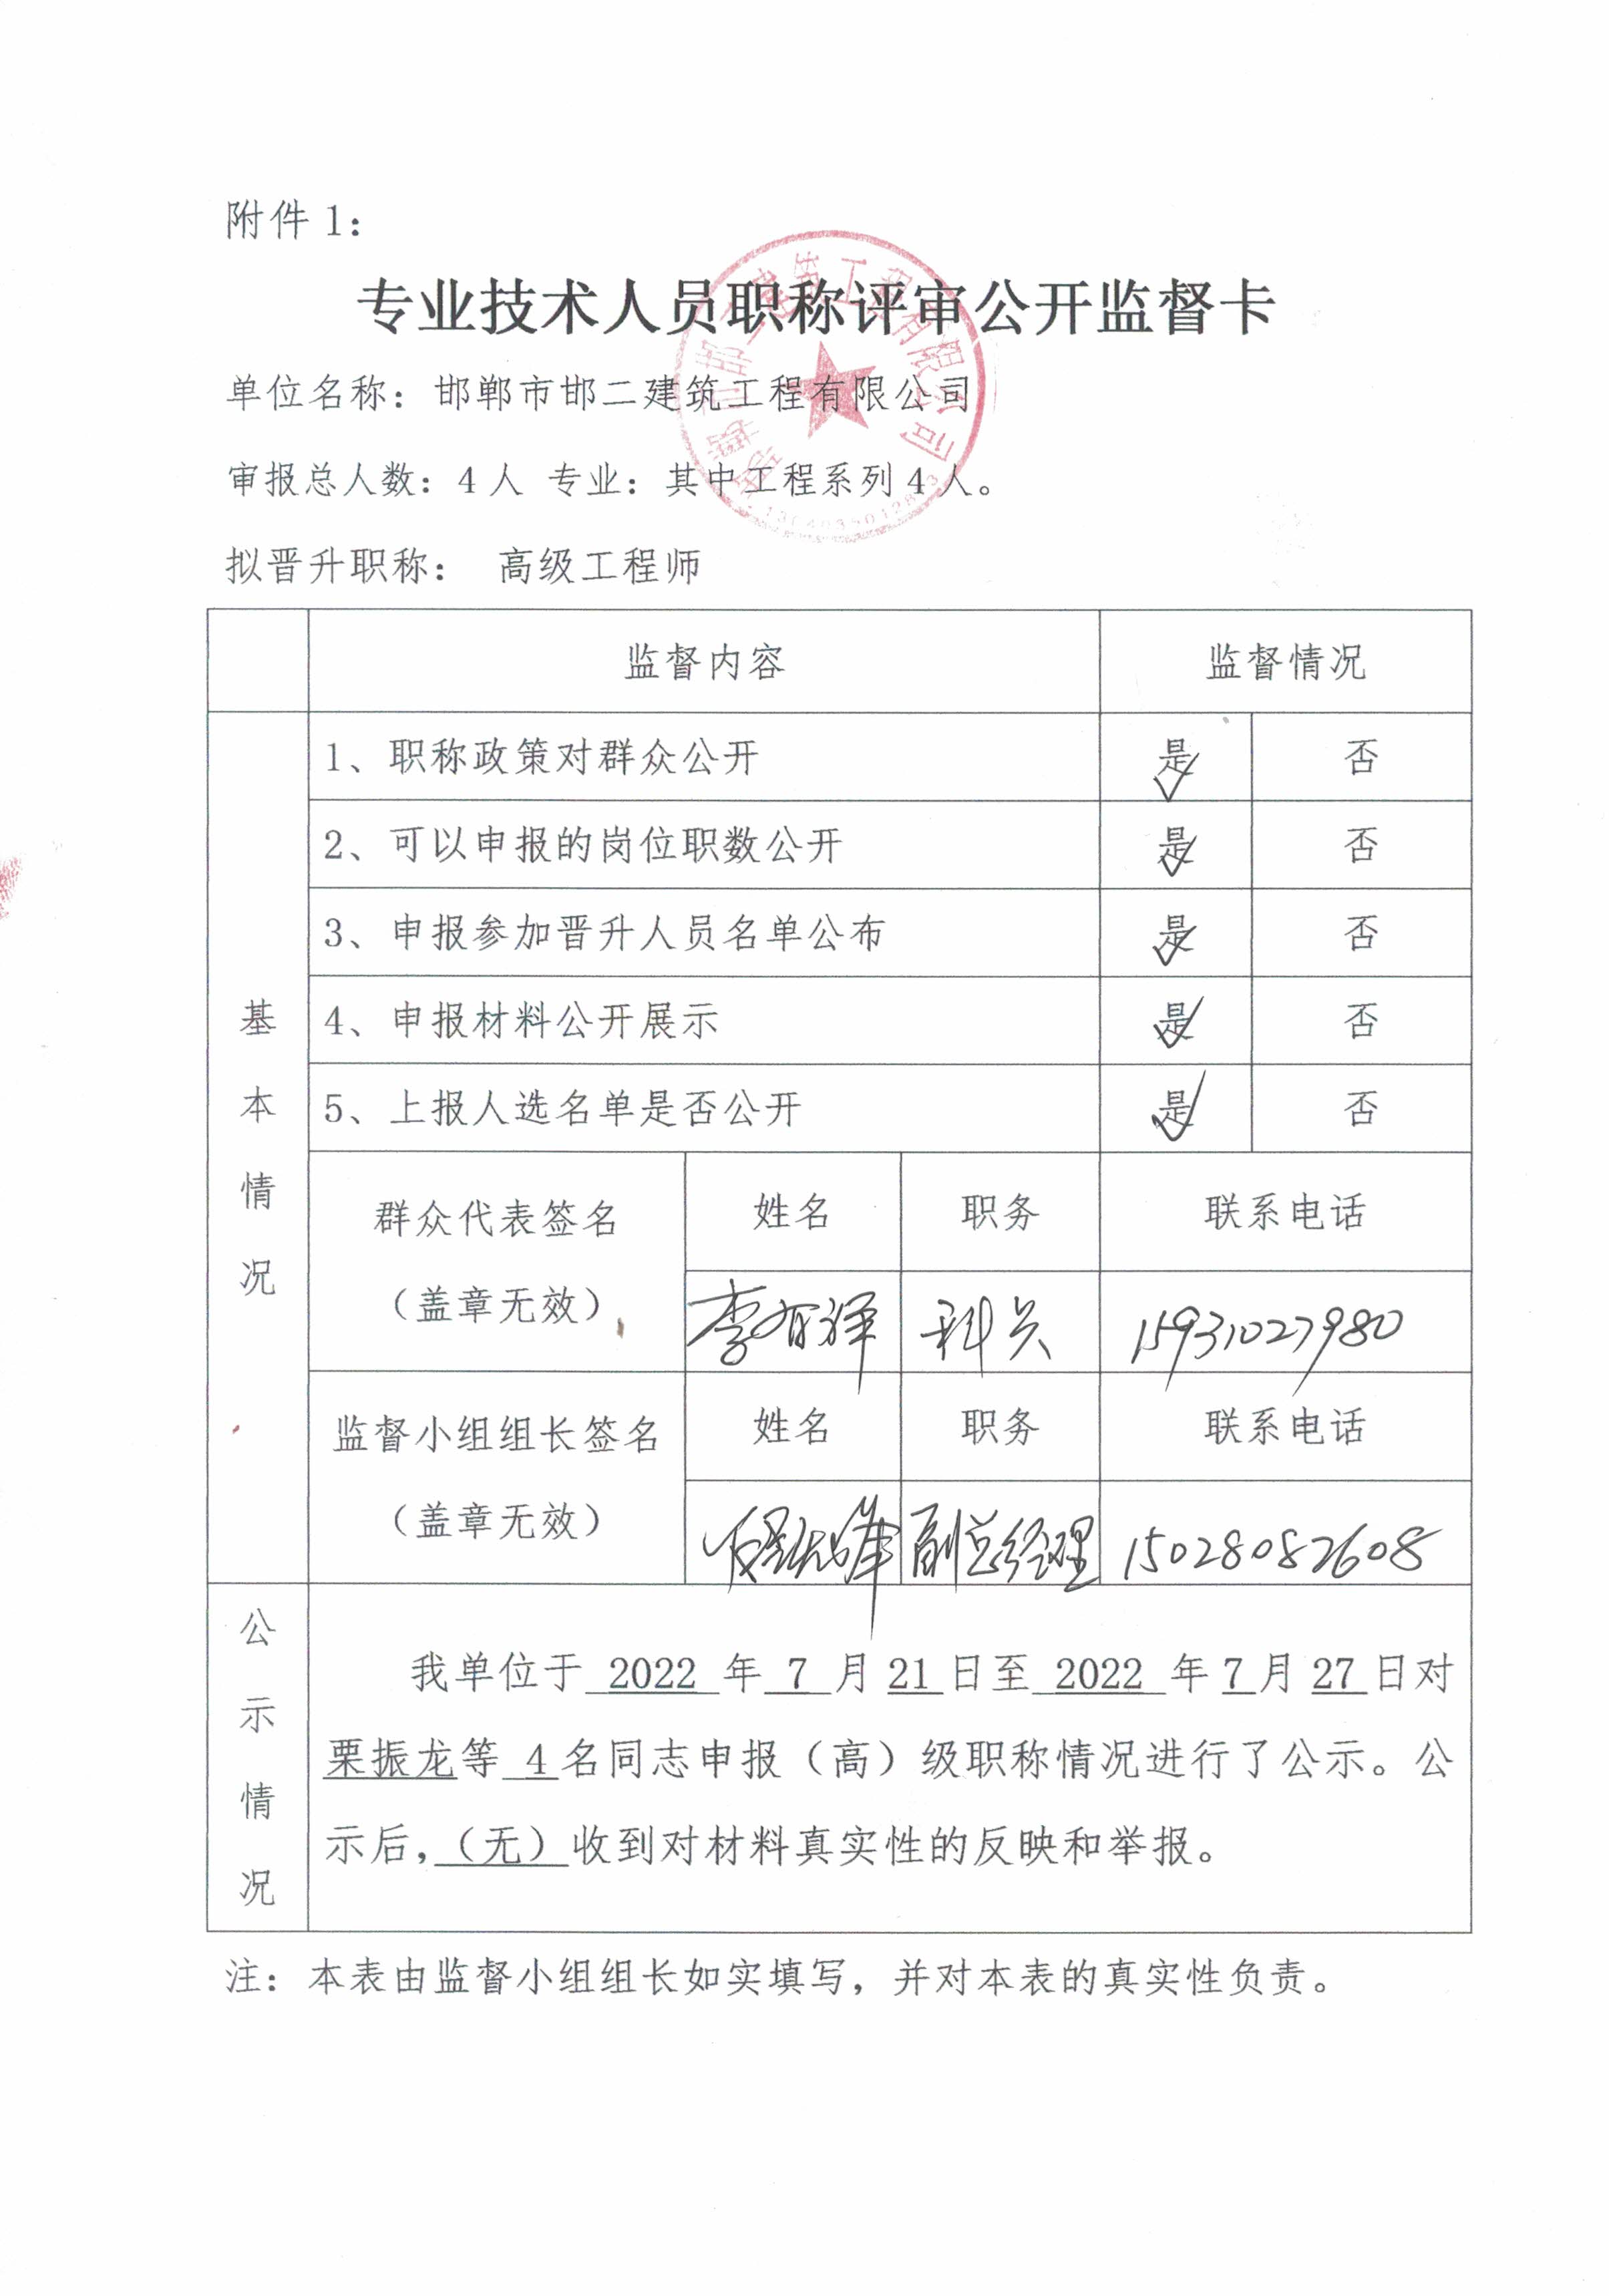 附件1：
专业技术人员职称评审公开监督卡
单位名称：邯郸市邯二建筑工程有限公司
审报总人数：4人 专业：其中工程系列4人。
拟晋升职称： 高级工程师
监督内容 监督情况
基本情况
1、职称政策对群众公开 是 否
2、可以申报的岗位职数公开 是 否
3、申报参加晋升人员名单公布 是 否
4、申报材料公开展示 是 否
5、上报人选名单是否公开 是 否
群众代表签名 姓名 职务 联系电话
（盖章无效） 科员 15931027980
监督小组组长签名 姓名 职务 联系电话
（盖章无效） 副总经理 15028082608
公示情况
我单位于 2022 年 7 月 21 日至 2022 年 7 月 27 日对
栗振龙等 4 名同志申报（高）级职称情况进行了公示。公
示后，（无）收到对材料真实性的反映和举报。
注：本表由监督小组组长如实填写，并对本表的真实性负责。
邯郸市邯二建筑工程有限公司